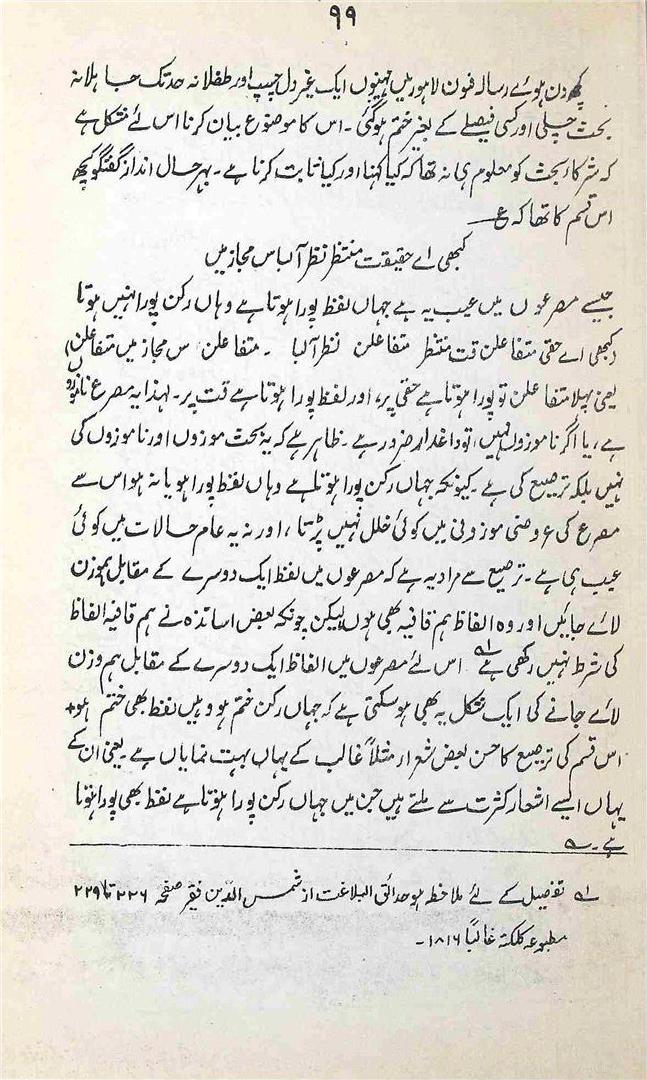 ۹۹
کچھ دن ہوئے رسالہ فنون لاہور میں مہینوں ایک غیر دل چسپ اور طفلانہ حد تک جاہلانہ
بحث چلی اور کسی فیصلے کے بغیر ختم ہو گئی۔ اس کا موضوع بیان کرنا اس لئے مشکل ہے
کہ شرکاء بحث کو معلوم ہی نہ تھا کہ کیا کہنا اور کیا ثابت کرنا ہے۔ بہر حال انداز گفتگو کچھ
اس قسم کا تھا کہ ع
کبھی اے حقیقت منتظر نظر آ لباس مجاز میں
جیسے مصرعوں میں عیب یہ ہے جہاں لفظ پورا ہوتا ہے وہاں رکن پورا نہیں ہوتا
(کبھی اے حقی متفاعلن قت منتظر متفاعلن نظر آلبا ۔ متفاعلن س مجاز میں متفاعلن)
یعنی پہلا متفاعلن تو پورا ہوتا ہے حقی پر، اور لفظ پورا ہوتا ہے قت پر۔ لہٰذا یہ مصرع ناموزوں
ہے، یا اگر ناموزوں نہیں، تو داغدار ضرور ہے۔ ظاہر ہے کہ یہ بحث موزوں اور ناموزوں کی
نہیں بلکہ ترصیع کی ہے۔ کیونکہ جہاں رکن پورا ہوتا ہے وہاں لفظ پورا ہو یا نہ ہو اس سے
مصرع کی عروضی موزونی میں کوئی خلل نہیں پڑتا، اور نہ یہ عام حالات میں کوئی
عیب ہی ہے۔ ترصیع سے مراد یہ ہے کہ مصرعوں میں لفظ ایک دوسرے کے مقابل ہموزن
لائے جائیں اور وہ الفاظ ہم قافیہ بھی ہوں لیکن چونکہ بعض اساتذہ نے ہم قافیہ الفاظ
کی شرط نہیں رکھی ہے ؎۱ اس لئے مصرعوں میں الفاظ ایک دوسرے کے مقابل ہم وزن
لائے جانے کی ایک شکل یہ بھی ہو سکتی ہے کہ جہاں رکن ختم ہو وہیں لفظ بھی ختم ہو۔
اس قسم کی ترصیع کا حسن بعض شعراء مثلاً غالب کے یہاں بہت نمایاں ہے۔ یعنی ان کے
یہاں ایسے اشعار کثرت سے ملتے ہیں جن میں جہاں رکن پورا ہوتا ہے لفظ بھی پورا ہوتا
ہے۔
؎۱ تفصیل کے لئے ملاخطہ ہو حدائق البلاغت از شمس الدین فقیر صفحہ ۲۲۶ تا ۲۲۹
مطبوعہ کلکتہ غالباً ۱۸۱۶۔